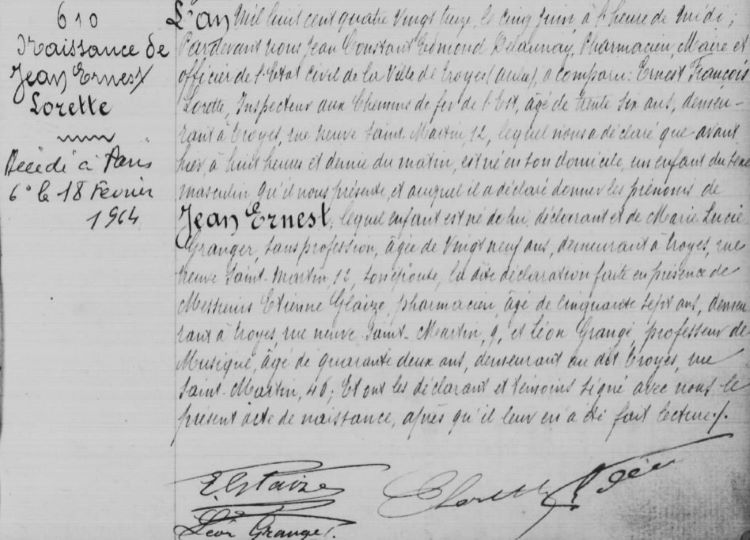 610
Naissance de
Jean Ernest
Lorette
Décédé à Paris
6e le 18 Février
1964
L'an Mil huit cent quatre vingt treize, le cinq Juin, à l'heure de midi;
Pardevant nous Jean Constant Edmond Delaunay, Pharmacien, Maire et
officier de l'Etat civil de la Ville de Troyes (aube), a comparu: Ernest François
Lorette, Inspecteur aux Chemins de fer de l'Est, âgé de trente six ans, demeu-
rant à Troyes, rue neuve Saint-Martin, 12, lequel nous a déclaré que avant
hier, à huit heures et demie du matin, est né en son domicile, un enfant du sexe
masculin qu'il nous présente, et auquel il a déclaré donner les prénoms de
Jean Ernest, lequel enfant est né de lui déclarant et de Marie Lucie
Granger, sans profession, âgée de vingt neuf ans, demeurant à Troyes, rue
neuve Saint-Martin, 12, son épouse, la dite déclaration faite en présence de
Messieurs Etienne Glaize, pharmacien, âgé de cinquante sept ans, demeu
rant à Troyes, rue neuve Saint-Martin, 9, et Léon Grangé professeur de
Musique, âgé de quarante deux ans, demeurant au dit Troyes, rue
Saint-Martin, 46; Et ont les déclarant et témoins signé avec nous le
présent acte de naissance, après qu'il leur en a été fait lecture.
E. Glaize
E Lorette
Léon Grangé